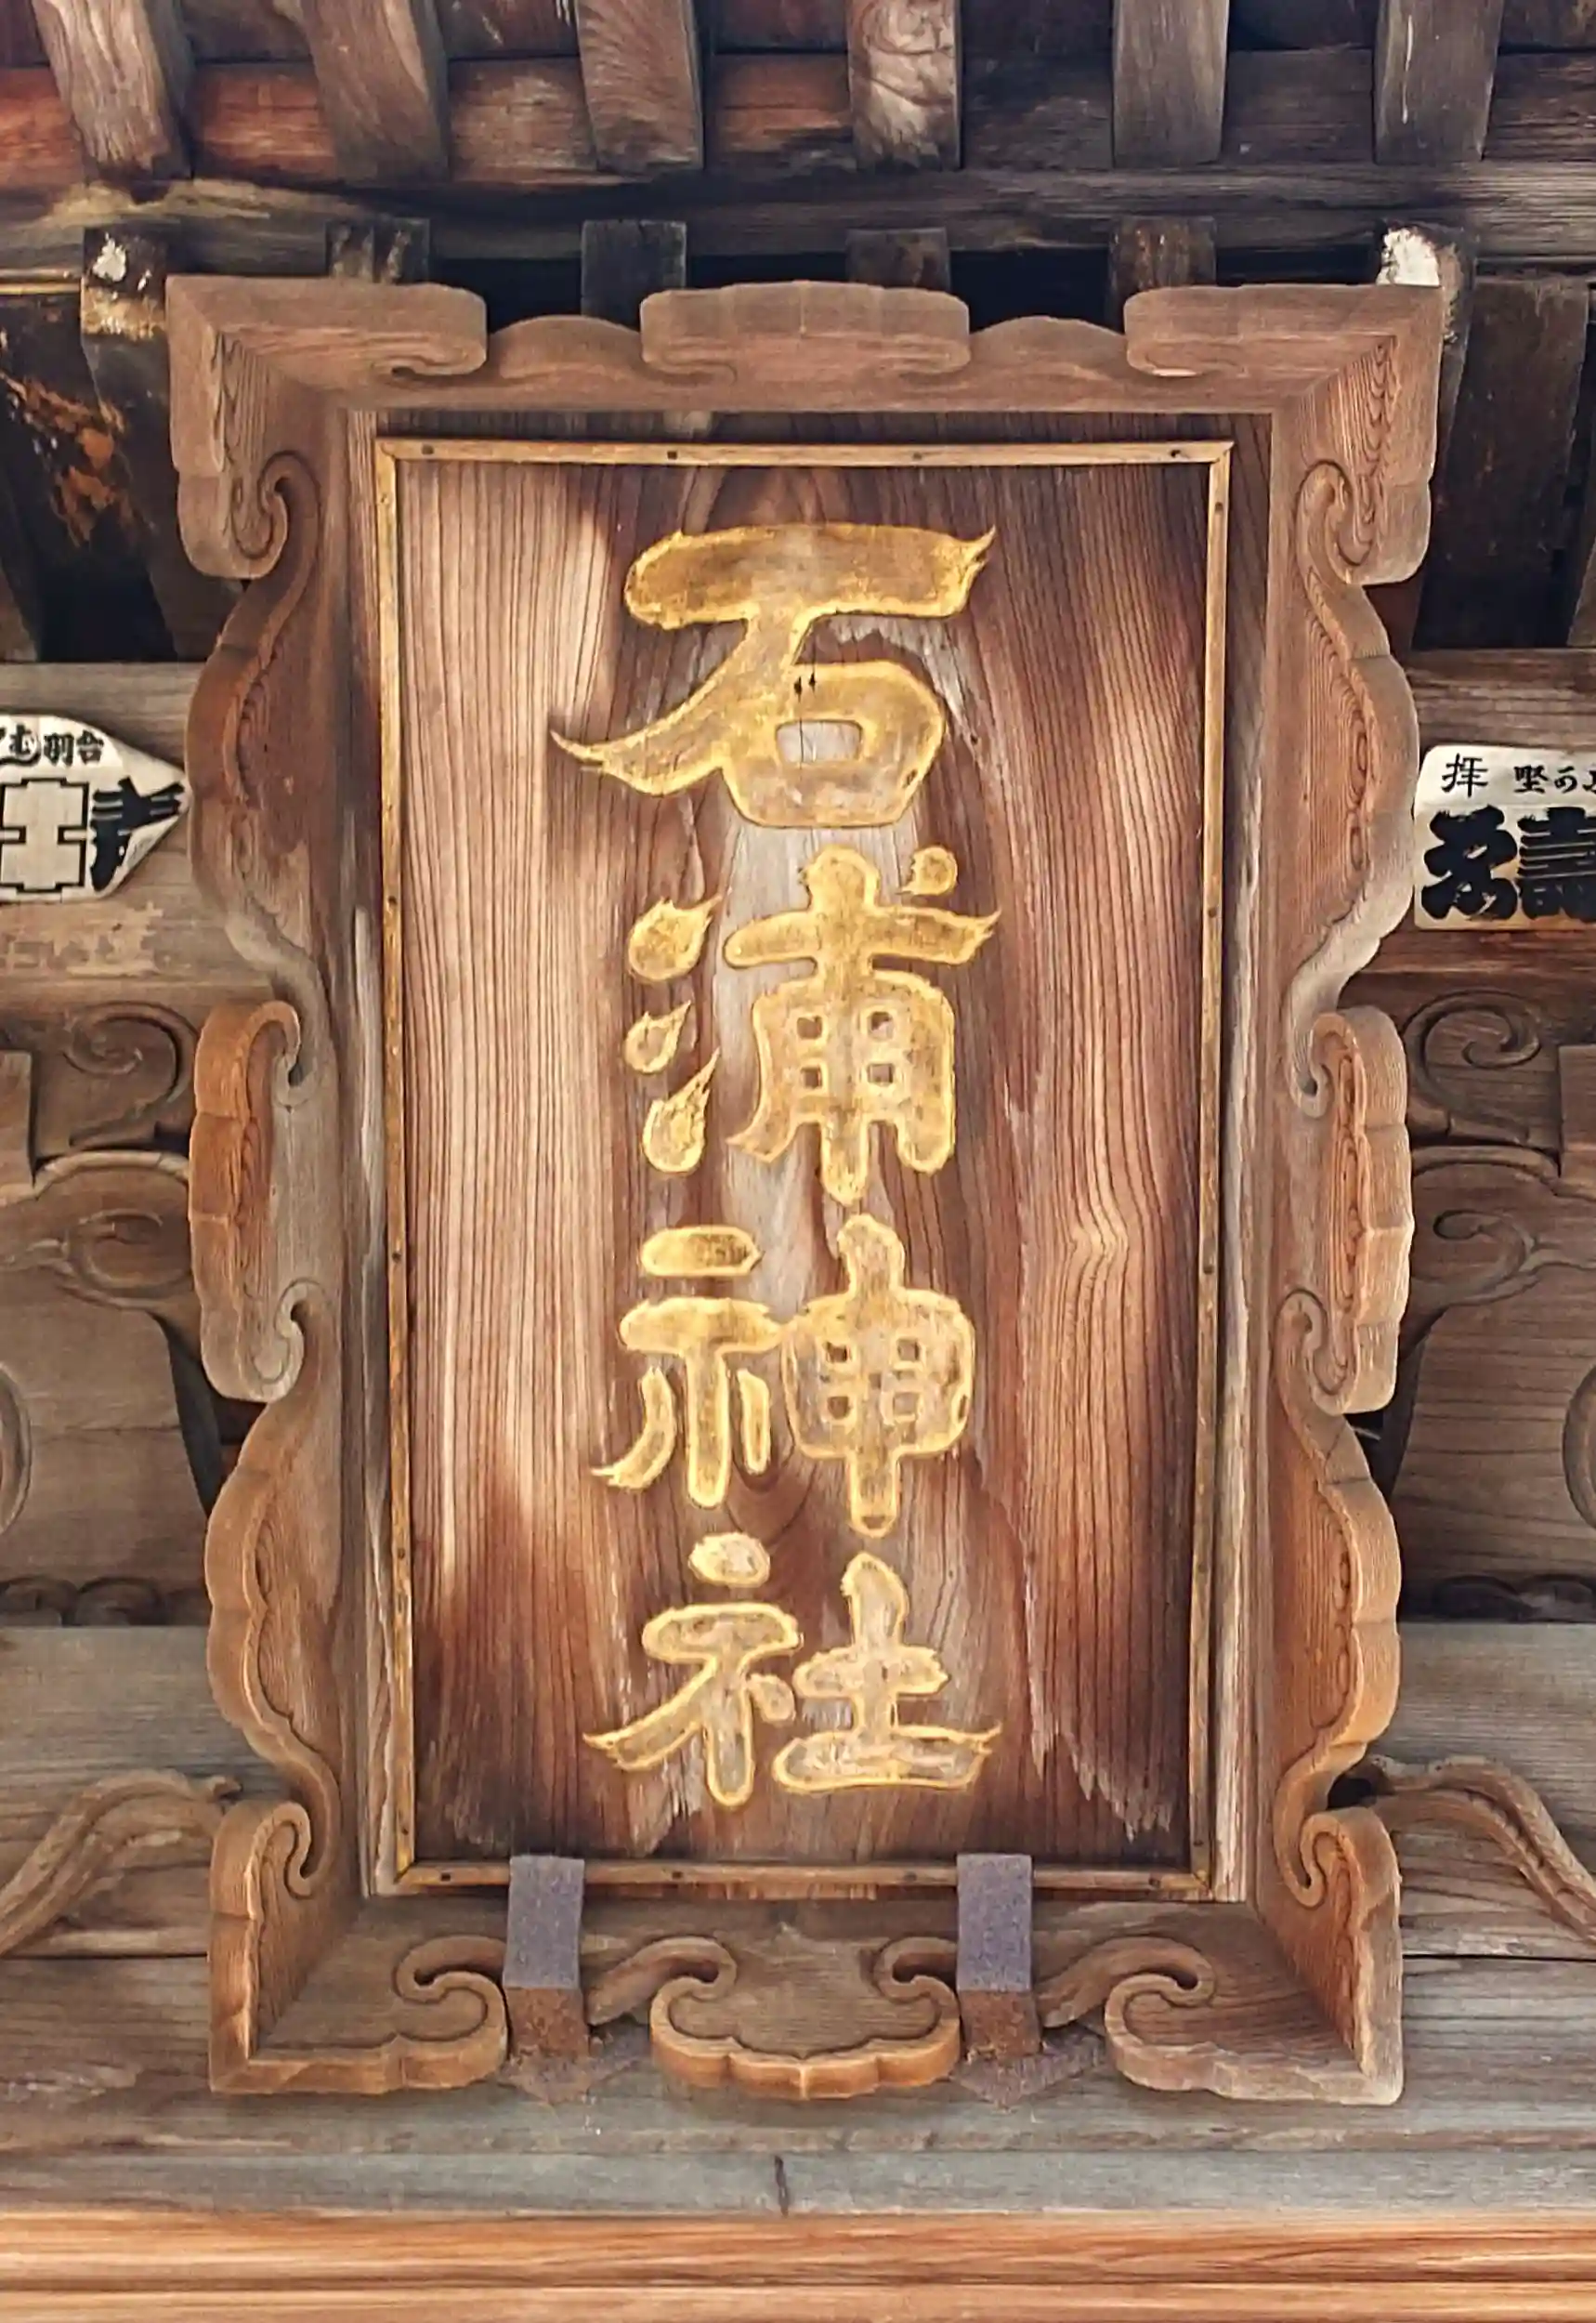 石浦神社
拝